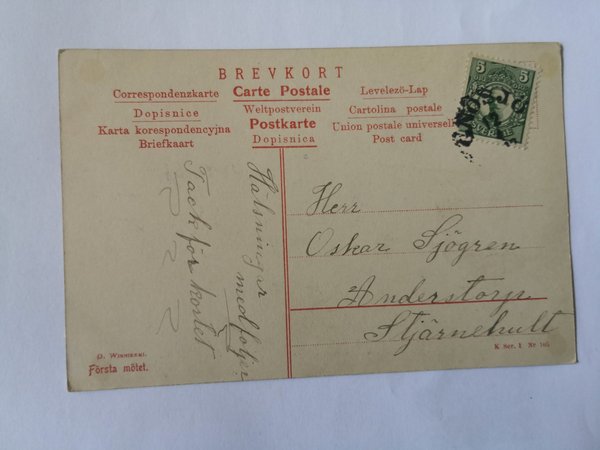 BREVKORT
Correspondenzkarte
Carte Postale
Levelező-Lap
Dopisnice
Weltpostverein
Cartolina postale
Karta korespondencyjna
Postkarte
Union postale universelle
Briefkaart
Dopisnica
Post card
5
5
SVERIGE
GNOSJÖ
Tack för kortet
Hälsningar
medföljer
Herr
Oskar Sjögren
Anderstorp
Stjärnehult
Första mötet.
K Ser. 1 Nr 105